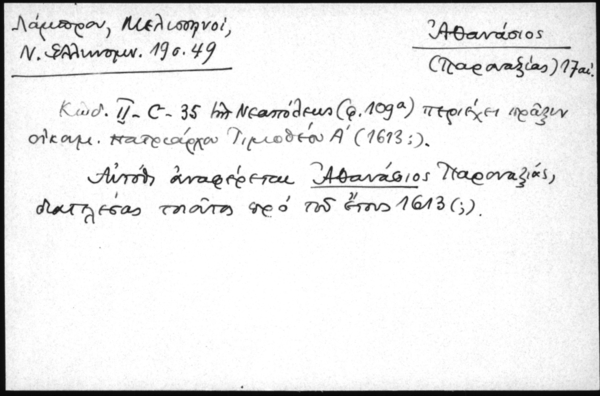 Λάμπρου, Μελισσηνοί,
Ν. Ἑλληνομν. 19 σ. 49
Ἀθανάσιος
(Παροναξίας) 17 αἰ.
Κωδ. II-C-35 τῆς Νεαπόλεως (φ. 109α) περιέχει πρᾶξιν
οἰκουμ. πατριάρχου Τιμοθέου Α΄ (1613;).
Αὐτόθι ἀναφέρεται Ἀθανάσιος Παροναξίας,
διατελέσας τοιοῦτος πρό τοῦ ἔτους 1613 (;).